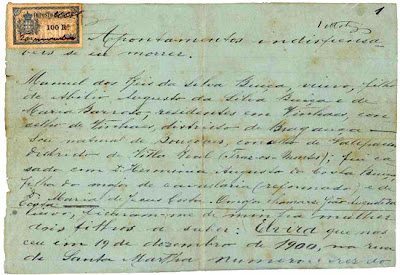 1
IMPOSTO
100 Rs
Apontamentos indispensa
veis se eu morrer.
Manuel dos Reis da Silva Buiça, viuvo, filho
de Abilio Augusto da Silva Buiça e de
Maria Barroso, residentes em Vinhaes, con
celho de Vinhaes, districto de Bragança.
Sou natural de Bouçoaes, concelho de Valpassos,
Districto de Villa Real (Traz-os-Montes); fui ca
sado com D. Herminia Augusta da Costa Buiça,
filha do major de cavallaria (reformado) e de
D. Maria de Jesus Costa.
ficaram-me de minha mulher
dois filhos a saber: Elvira que nas
ceu em 19 de dezembro de 1900, na rua
de Santa Martha numero